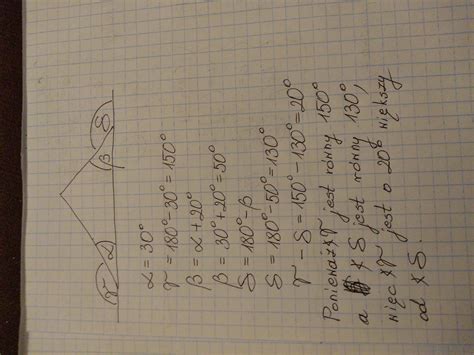 γ α β δ
α = 30°
γ = 180° - 30° = 150°
β = α + 20°
β = 30° + 20° = 50°
δ = 180° - β
δ = 180° - 50° = 130°
γ - δ = 150° - 130° = 20°
Ponieważ ∢γ jest równy 150°
a ∢δ jest równy 130°,
więc ∢γ jest o 20° większy
od ∢δ.